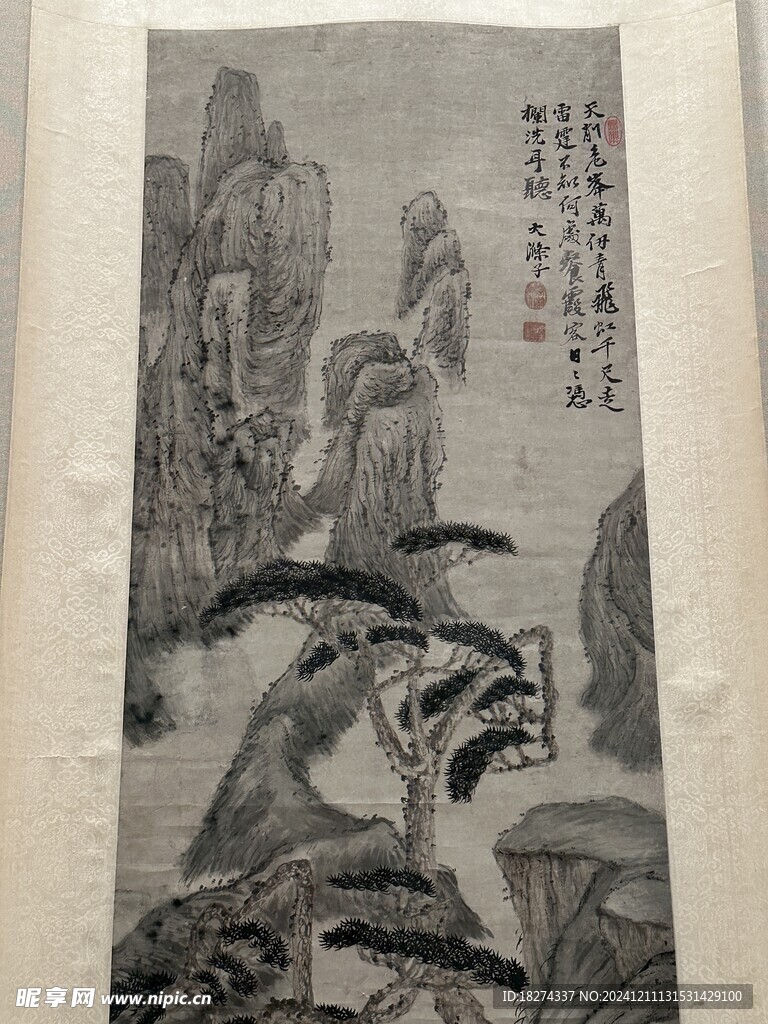 天削危峯萬仞青飛虹千尺走
雷霆不知何處餐霞客日〻憑
欄洗耳聽 大滌子
昵享网 www.nipic.cn
ID:18274337 NO:20241211131531429100